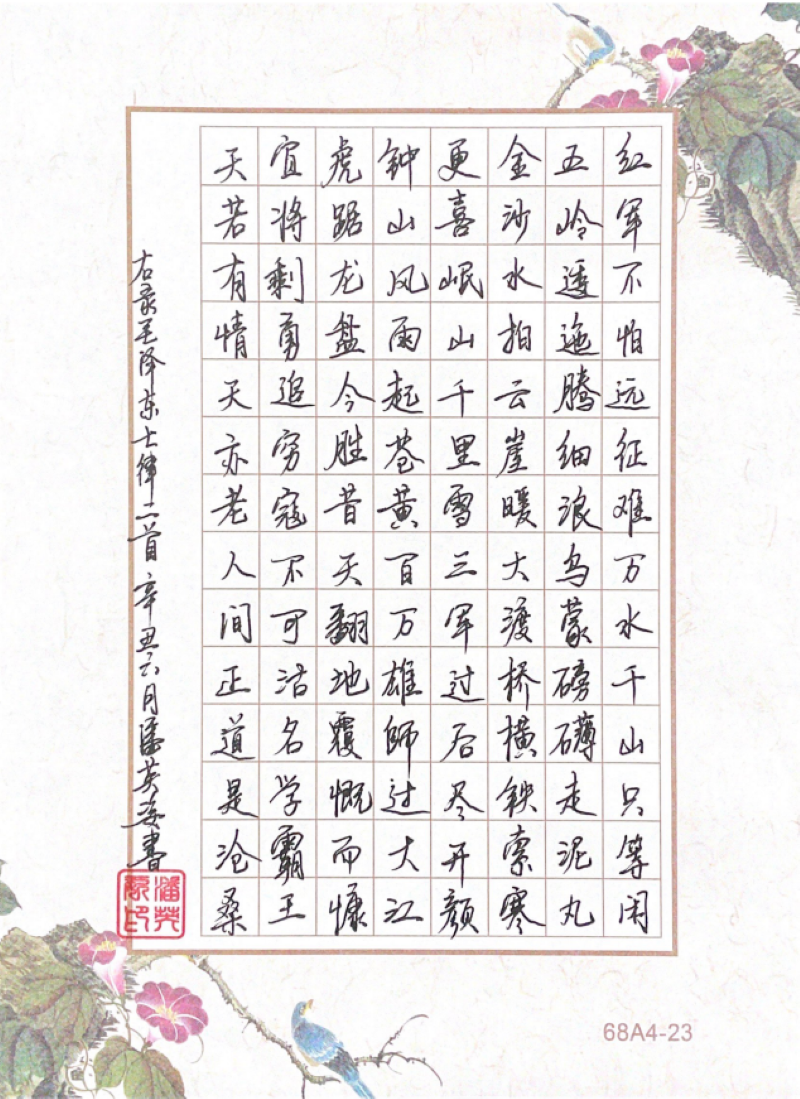 红军不怕远征难万水千山只等闲
五岭逶迤腾细浪乌蒙磅礴走泥丸
金沙水拍云崖暖大渡桥横铁索寒
更喜岷山千里雪三军过后尽开颜
钟山风雨起苍黄百万雄師过大江
虎踞龙盘今胜昔天翻地覆慨而慷
宜将剩勇追穷寇不可沽名学霸王
天若有情天亦老人间正道是沧桑
右录毛泽东七律二首 辛丑六月潘英书
潘英印
68A4-23